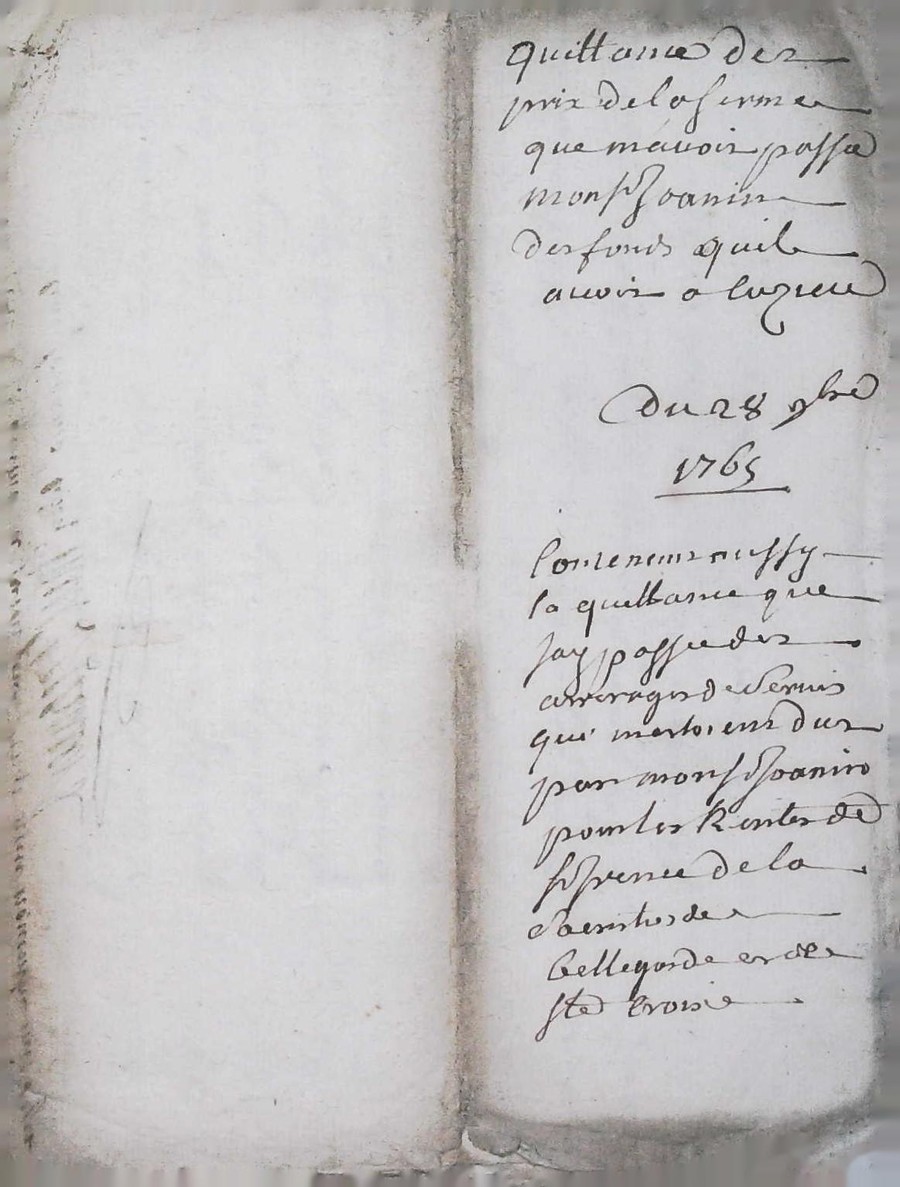 quittance des
prix de la ferme
que mavoit passée
monsr Joanin
des fonds quil
avoit a luzieu
Du 28 9bre
1765
Contenant aussy
la quittance que
jay passée des
arrerages de servis
qui mestoient dus
par monsr Joanin
pour les Rentes de
de la
de
bellegarde et de
Ste Croix